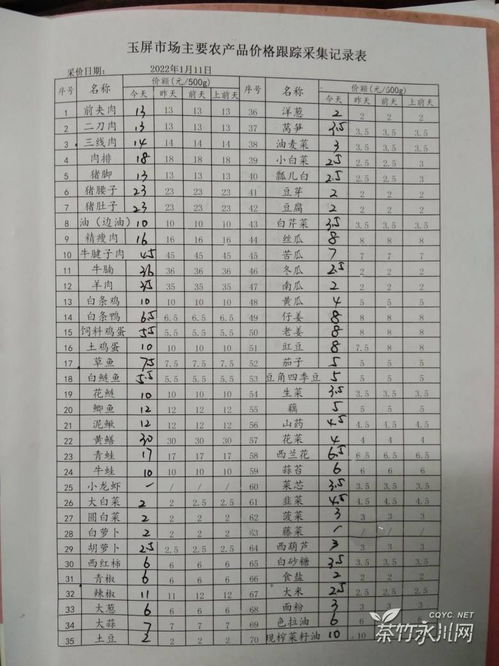 玉屏市场主要农产品价格跟踪采集记录表
采价日期： 2022年1月11日
序号 名称 价额(元/500g) 序号 名称 价额(元/500g)
今天 昨天 前天 上前天 今天 昨天 前天 上前天
1 前夹肉 13 13 13 13 36 洋葱 2 2 2 2
2 二刀肉 13 13 13 13 37 莴笋 3.5 3.5 3.5 3.5
3 三线肉 14 14 14 14 38 油麦菜 3 3 3 3.5
4 肉排 18 18 18 18 39 小白菜 2.5 2.5 2.5 3
5 猪脚 13 13 13 13 40 瓢儿白 2.5 2.5 2.5 3
6 猪腰子 23 23 23 23 41 豆芽 2 2 2 2
7 猪肚子 23 23 23 23 42 豆腐 2 2 2 2
8 油（边油） 10 10 10 10 43 白芹菜 3.5 3.5 3.5 3.5
9 精瘦肉 16 16 16 16 44 丝瓜 8 8 8 8
10 牛腱子肉 45 45 45 45 45 苦瓜 7 7 7 7
11 牛腩 36 36 36 36 46 冬瓜 2.5 2 2 2
12 羊肉 35 35 35 35 47 南瓜 2 2 2 2
13 白条鸡 10 10 10 10 48 黄瓜 4 5 5 5
14 白条鸭 6.5 6.5 6.5 6.5 49 仔姜 8 8 8 8
15 饲料鸡蛋 5.5 5.5 5.5 5.5 50 老姜 8 8 8 8
16 土鸡蛋 10 10 10 10 51 豇豆 8 7.5 8 8
17 草鱼 7.5 7.5 7.5 7.5 52 茄子 5 5 5 5
18 白鲢鱼 5.5 5.5 5.5 5.5 53 豆角四季豆 5 5 5 5
19 花鲢 10 10 10 10 54 生菜 3.5 3.5 3.5 3.5
20 鲫鱼 12 12 12 12 55 藕 5 5 5 5
21 泥鳅 12 12 12 12 56 山药 4.5 4.5 4.5 4.5
22 黄鳝 30 30 30 30 57 花菜 4 4 4 4
23 青蛙 17 17 17 17 58 西兰花 6.5 6.5 6.5 6.5
24 牛蛙 10 10 10 10 59 蒜苔 6 6 6 6
25 小龙虾 / / / 60 菜芯 3.5 3.5 3.5 3.5
26 大白菜 2 2 2.5 2.5 61 韭菜 4.5 4.5 4.5 4.5
27 圆白菜 2 2 2 2 62 菠菜 3 3 3 3
28 白萝卜 2 2 2 2 63 藤菜 / / /
29 胡萝卜 2.5 2.5 2.5 2.5 64 西葫芦 3 3 3 3
30 西红柿 6 6 6 6 65 白砂糖 3.5 3.5 3.5 3.5
31 青椒 6 6 6 6 66 食盐 2 2 2 2
32 辣椒 11 11 12 12 67 大米 2.5 2.5 2.5 2.5
33 大葱 6 6 6 6 68 面粉 3 3 3
34 大蒜 7 7 7 7 69 色拉油 6
35 土豆 2 2 2 2 70 现榨菜籽油 10 10
CQYC.NET
茶竹永川网